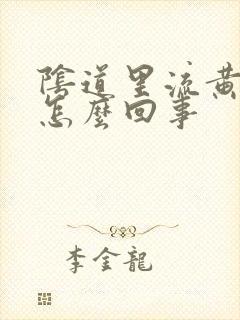 陰道里流黃
怎麼回事
李金龍